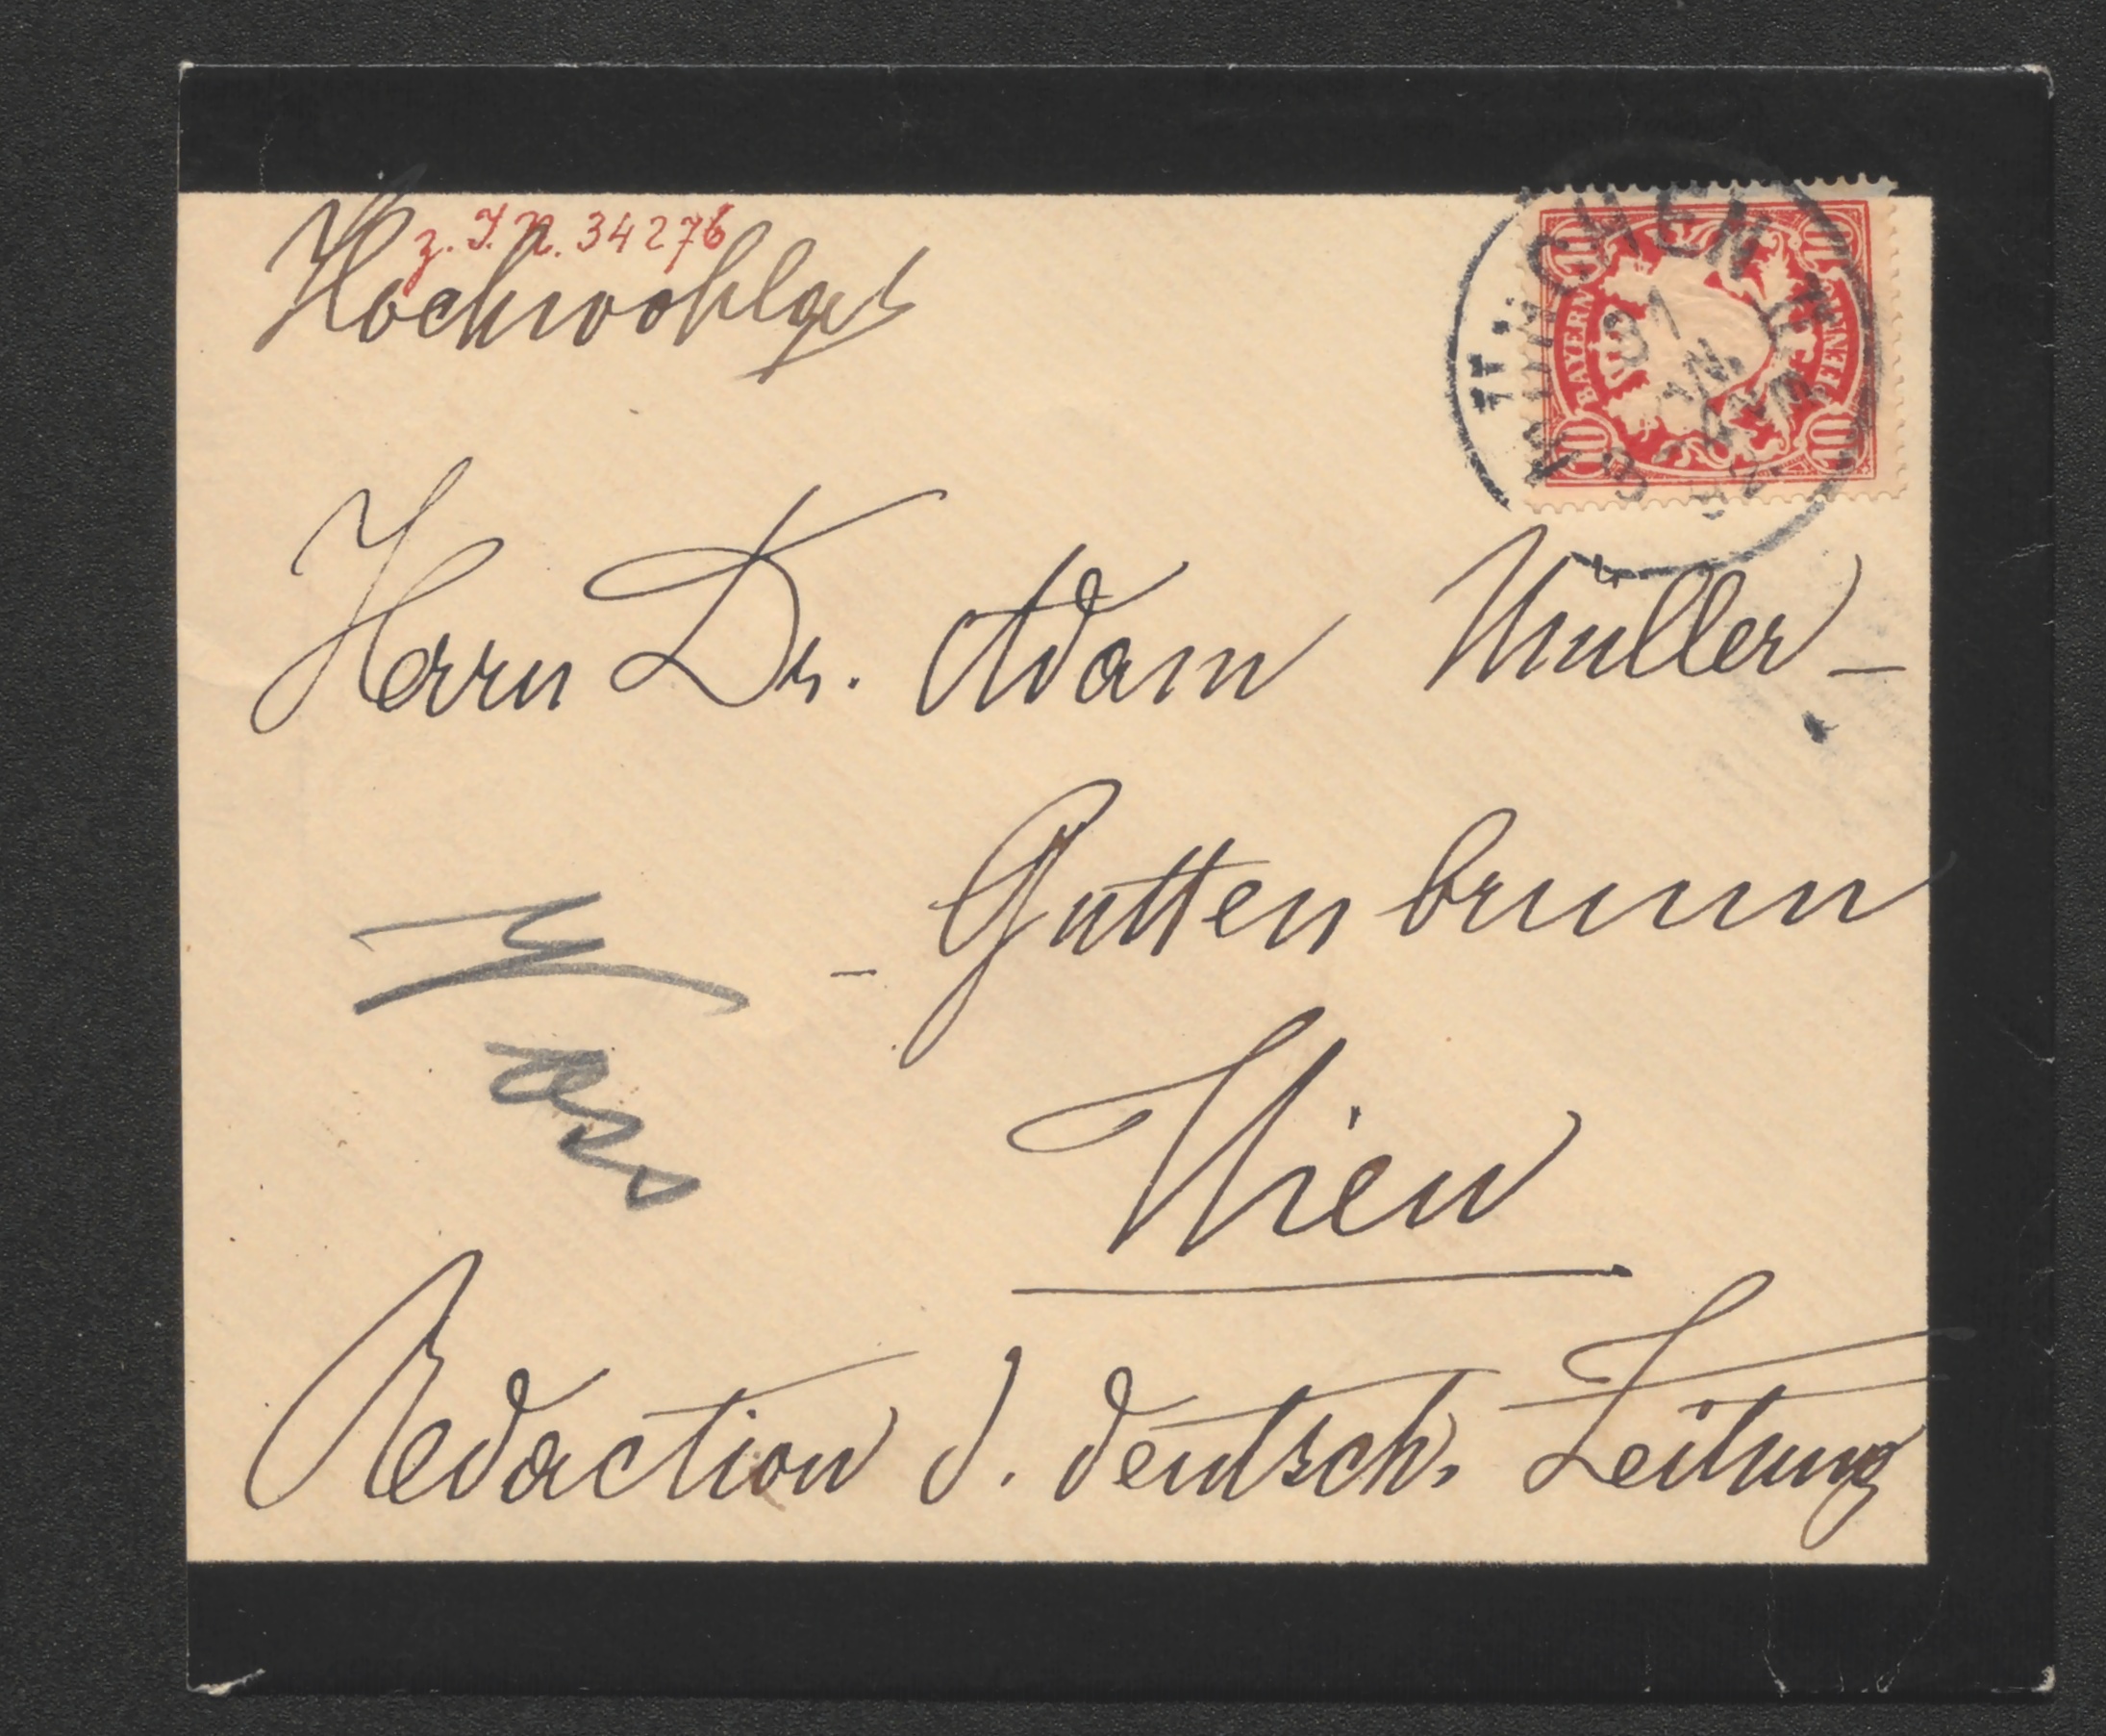 z. I. N. 34276
Hochwohlgeb
MÜNCHEN
BAYERN
PFENNIG
10 10
10 10
Herrn Dr. Adam Müller-
- Guttenbrunn
Wien
Redaction d. deutsch. Zeitung